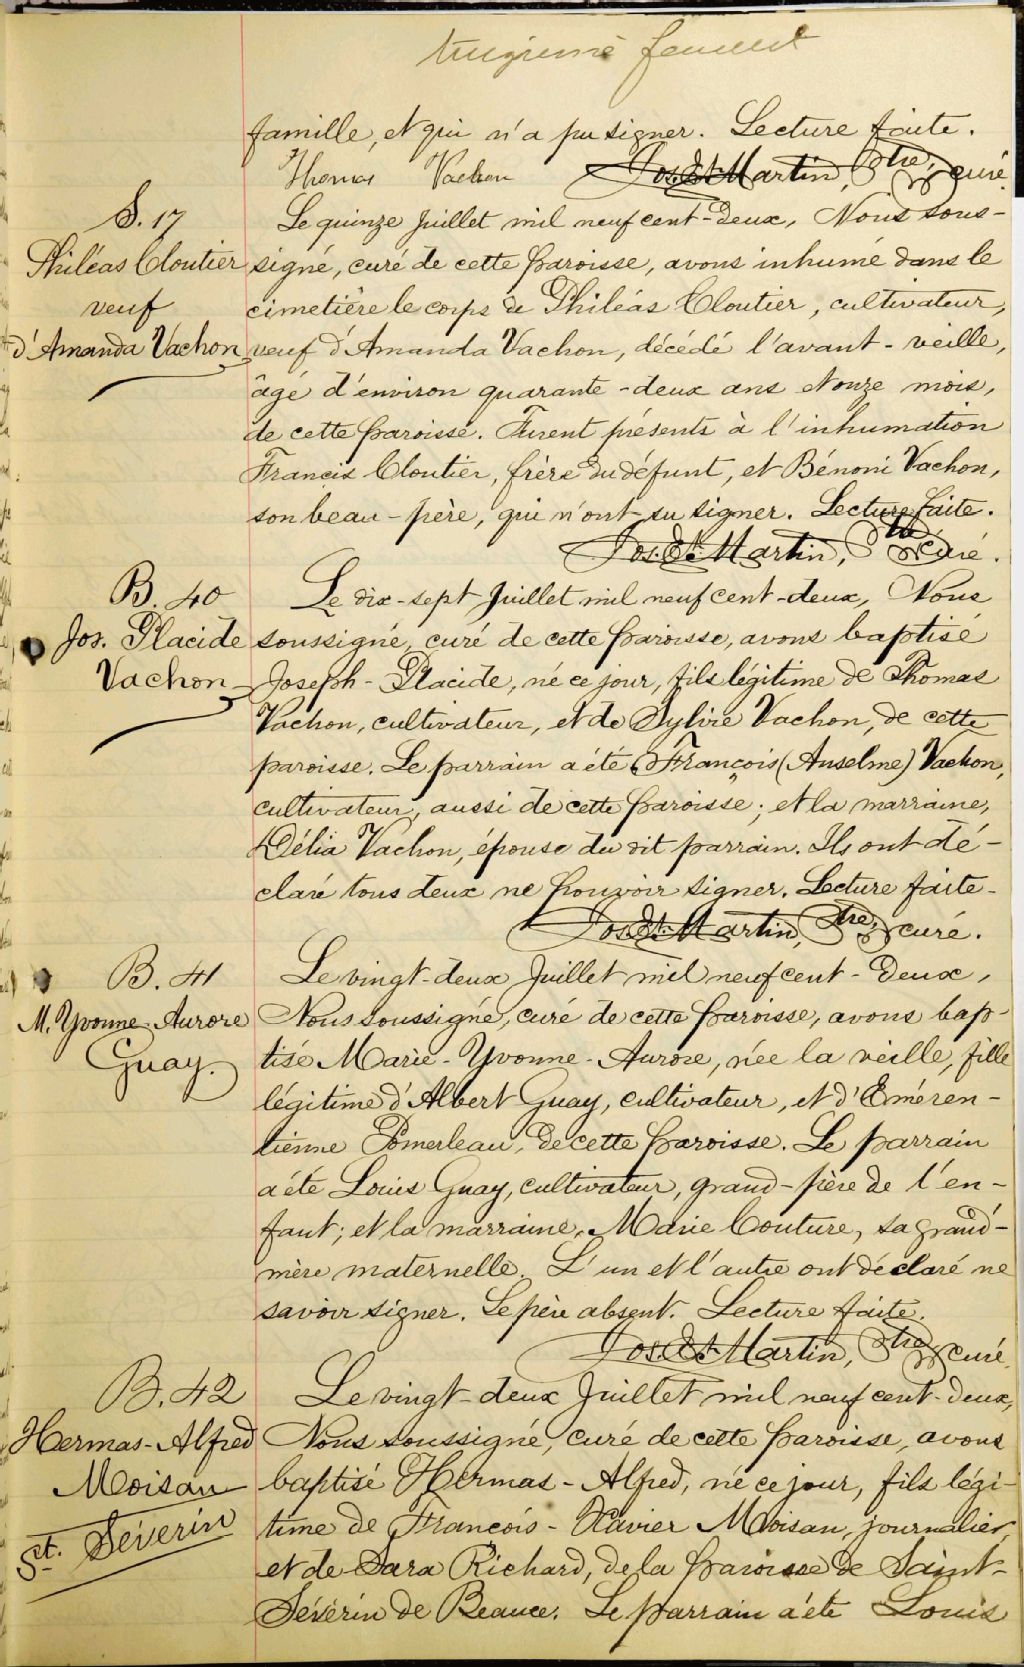 feuillet
famille, et qui n'a pu signer. Lecture faite.
Thomas Vachon Jos. E. St. Martin, Ptre, curé.
S. 17
Philéas Cloutier
veuf
d'Amanda Vachon
Le quinze Juillet mil neuf cent-deux, Nous sous-
signé, curé de cette paroisse, avons inhumé dans le
cimetière le corps de Philéas Cloutier, cultivateur,
veuf d'Amanda Vachon, décédé l'avant-veille,
âgé d'environ quarante-deux ans et onze mois,
de cette paroisse. Furent présents à l'inhumation
Francis Cloutier, frère du défunt, et Bénoni Vachon,
son beau-père, qui n'ont su signer. Lecture faite.
Jos. E. St. Martin, Ptre curé.
B. 40
Jos. Placide
Vachon
Le dix-sept Juillet mil neuf cent-deux, Nous
soussigné, curé de cette paroisse, avons baptisé
Joseph-Placide, né ce jour, fils légitime de Thomas
Vachon, cultivateur, et de Sylvie Vachon, de cette
paroisse. Le parrain a été François (Anselme) Vachon,
cultivateur, aussi de cette paroisse; et la marraine,
Délia Vachon, épouse du dit parrain. Ils ont dé-
claré tous deux ne pouvoir signer. Lecture faite-
Jos. E. St. Martin, Ptre, curé.
B. 41
M. Yvonne Aurore
Guay.
Le vingt-deux Juillet mil neuf cent-deux,
Nous soussigné, curé de cette paroisse, avons bap-
tisé Marie-Yvonne-Aurore, née la veille, fille
légitime d'Albert Guay, cultivateur, et d'Eméren-
tienne Pomerleau, de cette paroisse. Le parrain
a été Louis Guay, cultivateur, grand-père de l'en-
fant; et la marraine, Marie Couture, sa grand'-
mère maternelle. L'un et l'autre ont déclaré ne
savoir signer. Le père absent. Lecture faite.
Jos. E. St. Martin, Ptre, curé.
B. 42
Hermas-Alfred
Moisan
St. Séverin
Le vingt-deux Juillet mil neuf cent-deux,
Nous soussigné, curé de cette paroisse, avons
baptisé Hermas-Alfred, né ce jour, fils légi-
time de François-Xavier Moisan, journalier,
et de Sara Richard, de la paroisse de Saint-
Séverin de Beauce. Le parrain a été Louis